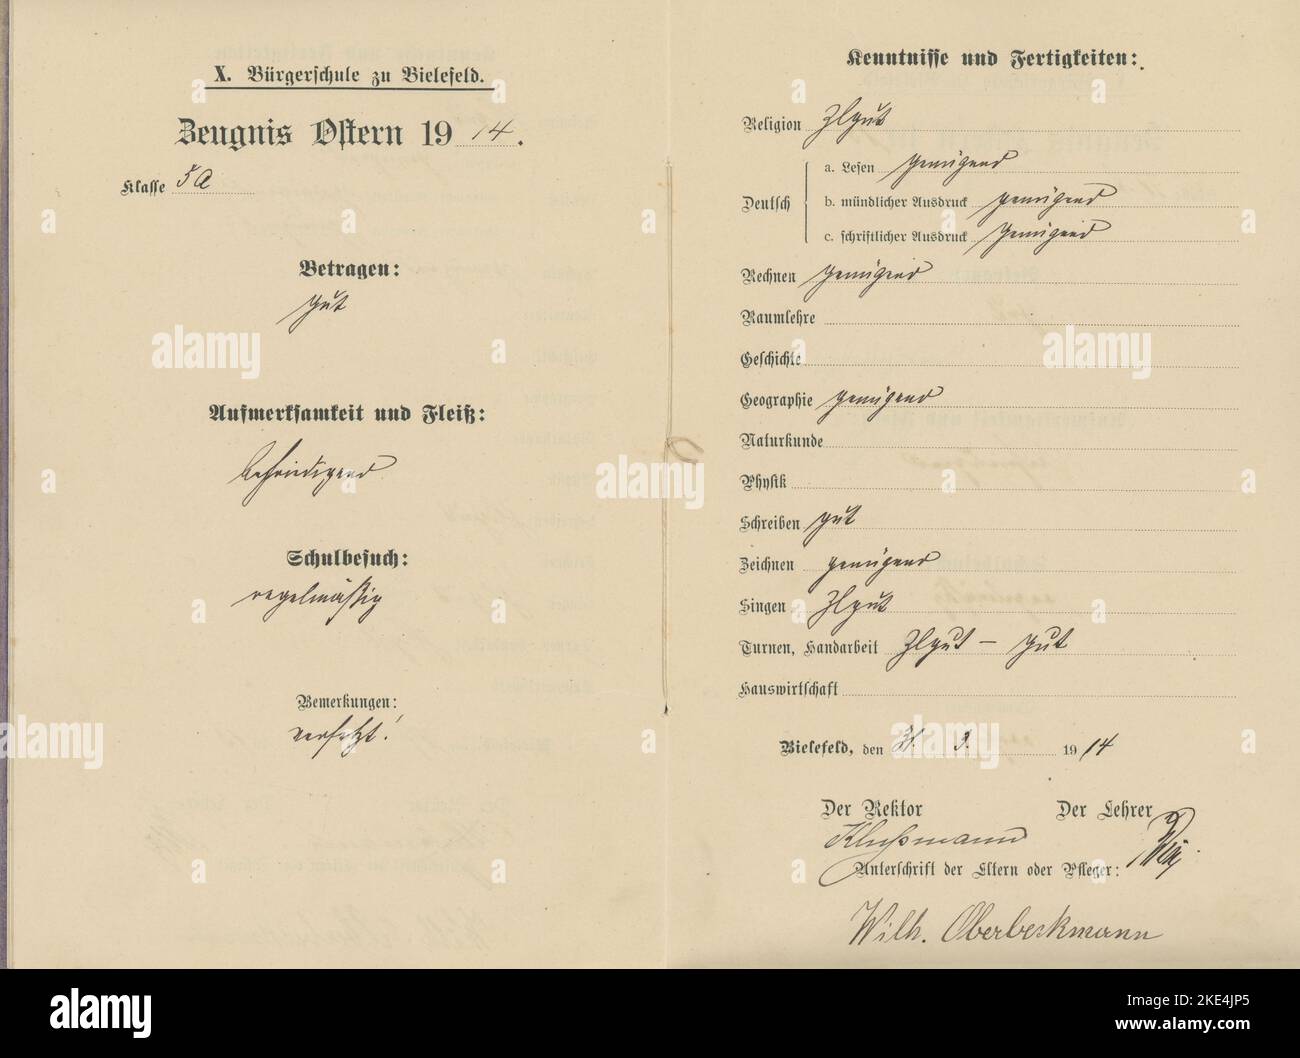 X. Bürgerschule zu Bielefeld.
Zeugnis Ostern 1914.
Klasse 5a
Betragen:
gut
Aufmerksamkeit und Fleiß:
befriedigend
Schulbesuch:
regelmäßig
Bemerkungen:
versetzt!
Kenntnisse und Fertigkeiten:
Religion Zl gut
Deutsch
a. Lesen genügend
b. mündlicher Ausdruck genügend
c. schriftlicher Ausdruck genügend
Rechnen genügend
Raumlehre
Geschichte
Geographie genügend
Naturkunde
Physik
Schreiben gut
Zeichnen genügend
Singen Zl gut
Turnen, Handarbeit Zl gut – gut
Hauswirtschaft
Bielefeld, den 31. 3. 1914
Der Rektor Der Lehrer
Klußmann
Unterschrift der Eltern oder Pfleger:
Wilh. Oberbeckmann
alamy
alamy
Image ID: 2KE4JP5
www.alamy.com